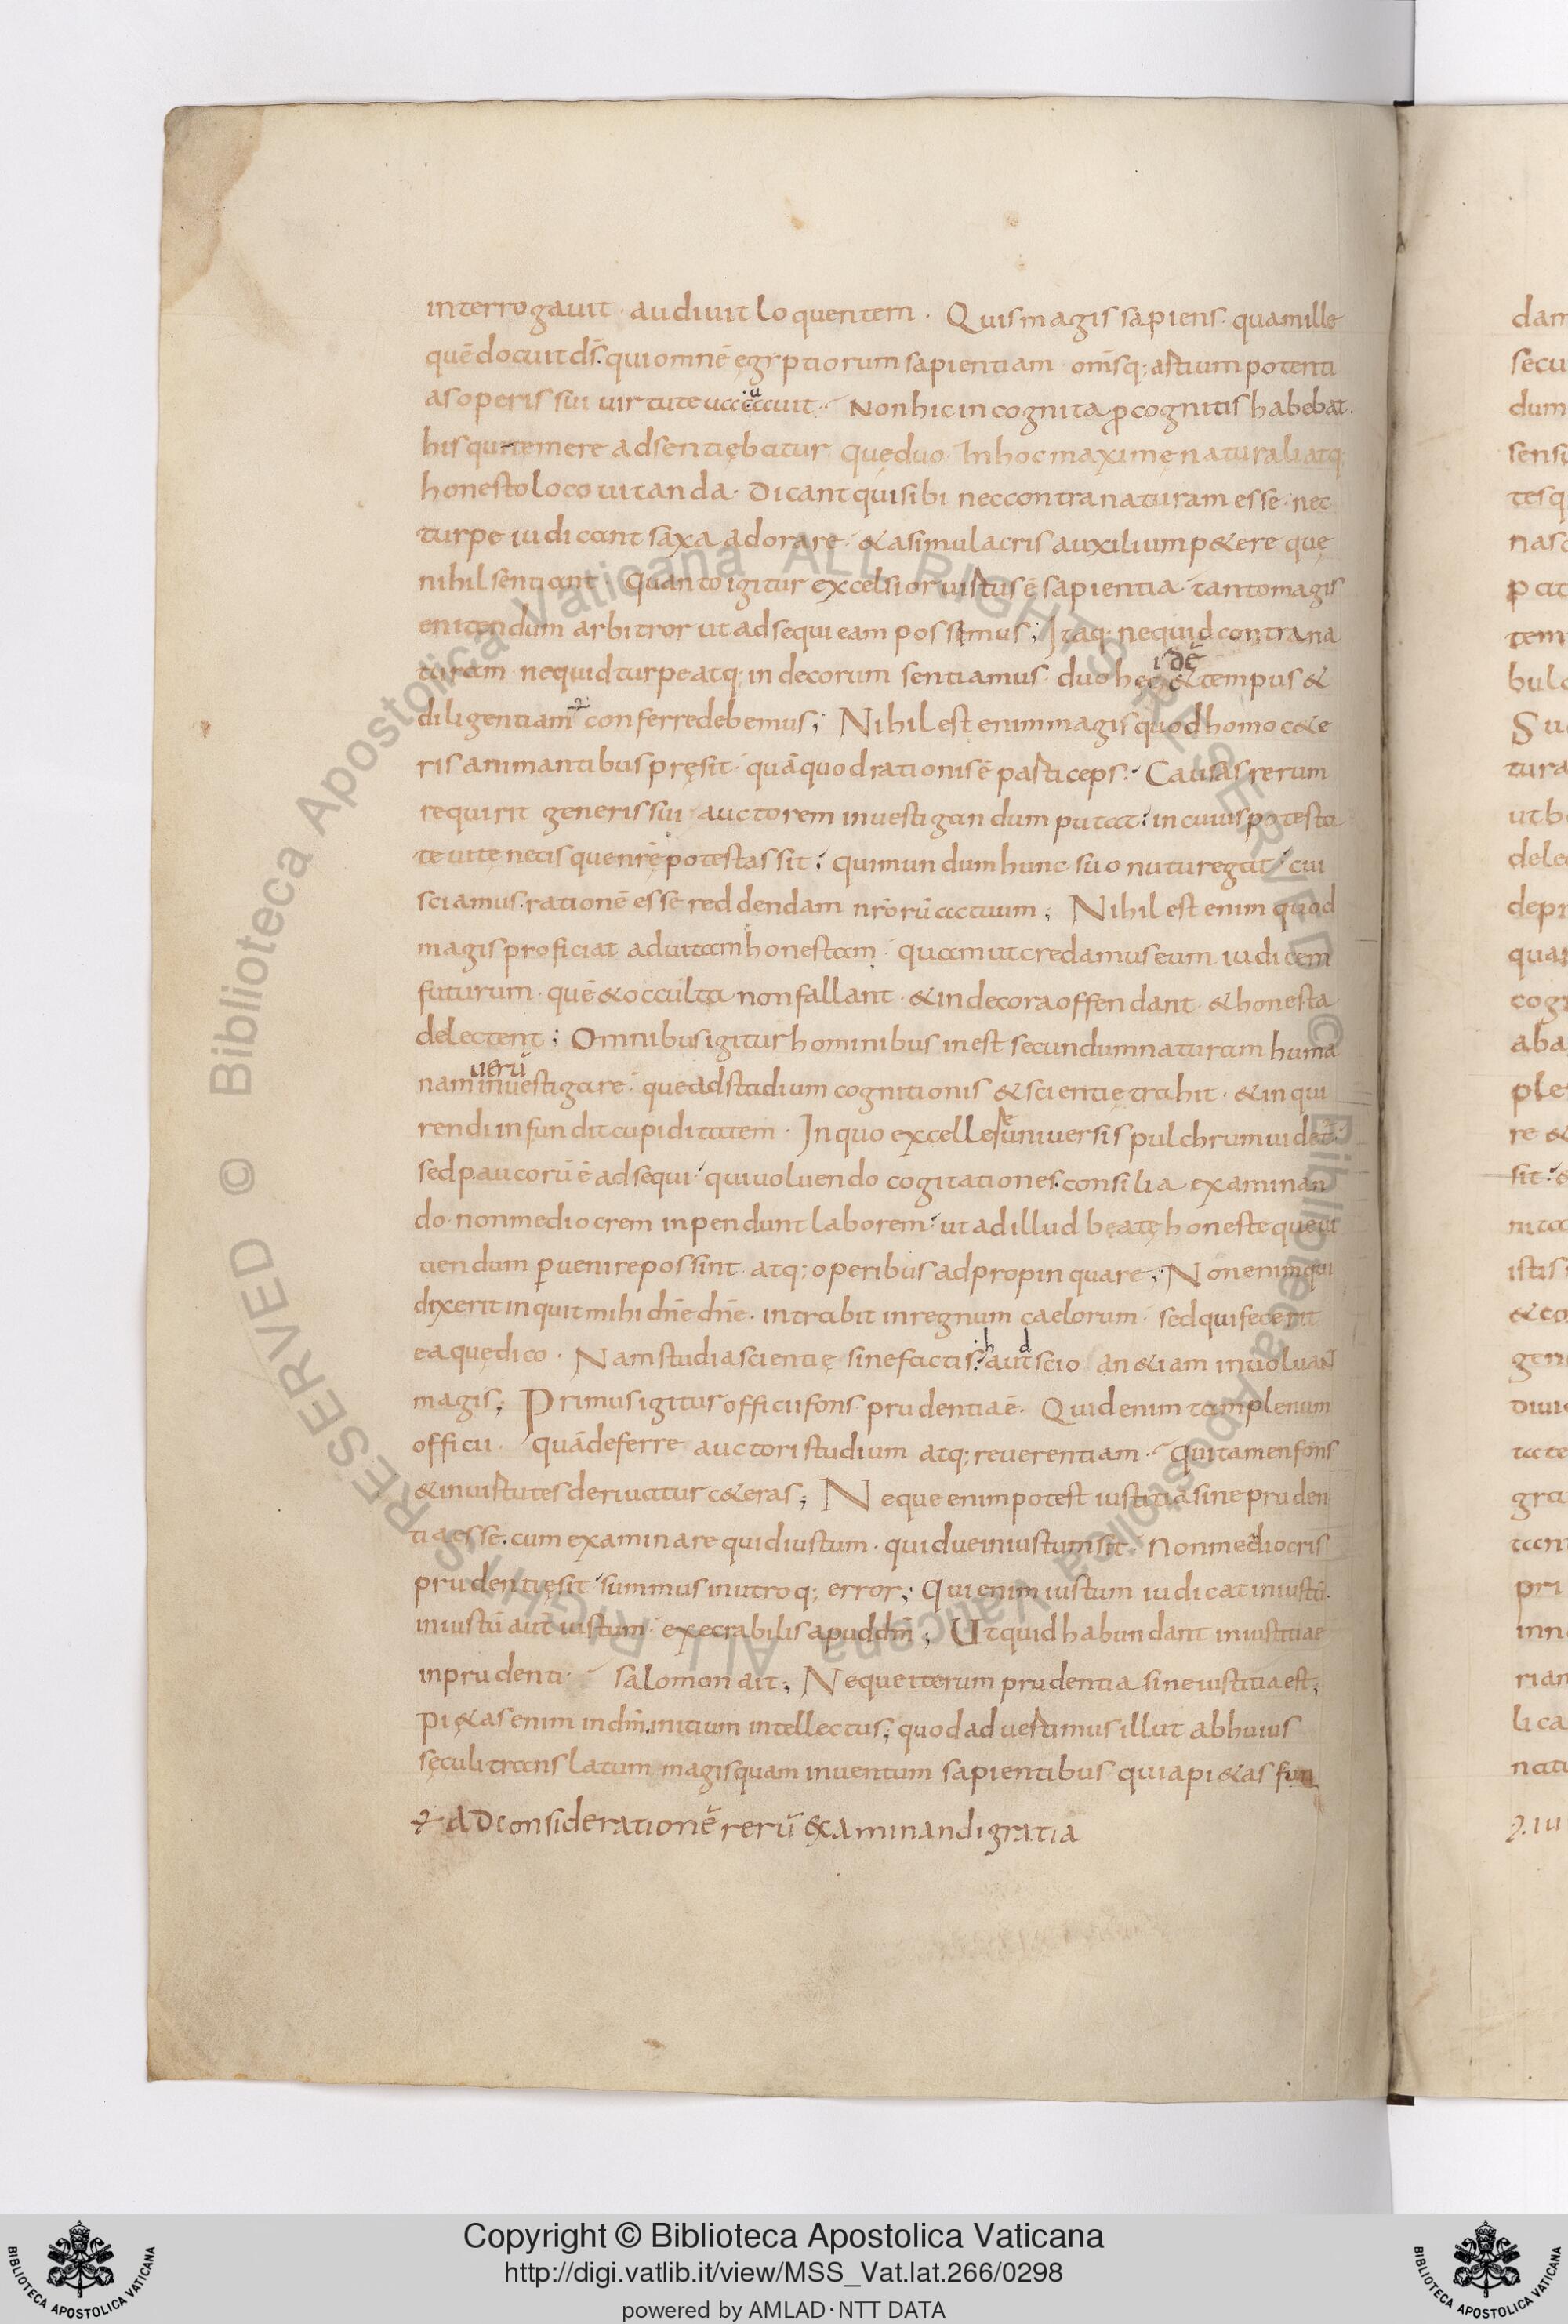 interrogauit · audiuit loquentem . Quis magis sapiens · quam ille
quē docuit ds̄ · qui omnē ęgiptiorum sapientiam omīsq; artium potenti
as operis sui uirtute uacuauit · Non hic incognita ꝓ cognitis habebat .
his qui temere adsentiębatur quę duo · In hoc maximę naturali atq;
honesto loco uitanda · Dicant qui sibi nec contra naturam esse · nec
turpe iudicant saxa adorare · & a simulacris auxilium p&ere quę
nihil sentiant · Quanto igitur excelsior uirtus ē sapientia · tanto magis
enitendum arbitror ut adsequi eam possimus ; Itaq; ne quid contra na
turam ne quid turpe atq; indecorum sentiamus · duo hęc idē & tempus &
diligentiam conferre debemus ; Nihil est enim magis quod homo c&e
ris animantibus pręsit · quā quod rationis ē particeps · Causas rerum
requirit generis sui auctorem inuestigandum putat · in cuius potesta
te uitę necisque nr̄ę potestas sit · qui mundum hunc suo nutu regat · cui
sciamus rationē esse reddendam nr̄orū actuum ; Nihil est enim quod
magis proficiat ad uitam honestam · quam ut credamus eum iudicem
futurum · quē & occulta non fallant · & indecora offendant · & honesta
delectent ; Omnibus igitur hominibus inest secundum naturam huma
nam uerū inuestigare · que ad studium cognitionis & scientię trahit · & inqui
rendi infundit cupiditatem · In quo excellere uniuersis pulchrum uidet̄
sed paucorū ē adsequi · qui uoluendo cogitationes consilia examinan
do · non mediocrem inpendunt laborem · ut ad illud bęatę honesteque ui
uendum ꝑuenire possint atq; operibus adpropinquare ; Non enim qui
dixerit inquit mihi dn̄e dn̄e · intrabit in regnum caelorum · sed qui fecerit
ea quę dico · Nam studia scientię sine factis · haud scio an &iam inuoluant
magis ; Primus igitur officii fons prudentia ē · Quid enim tam plenum
officii quā deferre auctori studium atq; reuerentiam · Qui tamen fons
& in uirtutes deriuatur c&eras ; Neque enim potest iustitia sine pruden
tia esse · cum examinare quid iustum · quidue iniustum sit · non mediocris
prudentię sit · summus in utroq; error ; Qui enim iustum iudicat iniustū ·
iniustū aut̄ iustum · execrabilis apud dm̄ ; Ut quid habundant iniustitiae
inprudenti · salomon ait ; Neque iterum prudentia sine iustitia est ;
Pi&as enim in dm̄ initium intellectus ; quod aduertimus illut ab huius
sęculi translatum magis quam inuentum sapientibus quia pi&as fun
ad considerationē rerū examinandi gratia
Copyright © Biblioteca Apostolica Vaticana
http://digi.vatlib.it/view/MSS_Vat.lat.266/0298
powered by AMLAD·NTT DATA